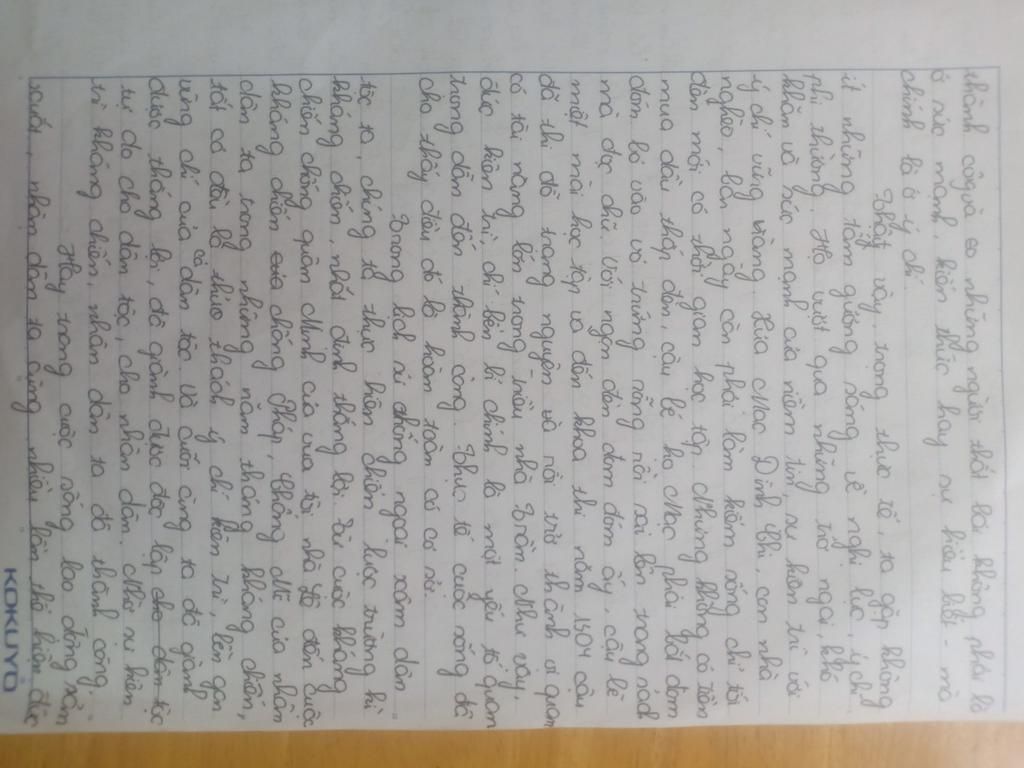 thành côgvà so những người thất bại không phải là
ở sức mạnh, kiến thức hay sự hiểu biết - mà
chính là ở ý chí.
Thật vậy, trong thực tế ta gặp không
ít những tấm gương sáng về nghị lực, ý chí
phi thường. Họ vượt qua những trở ngại, khó
khăn và sức mạnh của niềm tin, sự kiên trì với
ý chí vững vàng. Xưa Mạc Đĩnh Chi con nhà
nghèo, ban ngày còn phải làm kiếm sống chỉ tối
đến mới có thời gian học tập. Nhưng không có tiền
mua dầu thắp đèn, cậu bé họ Mạc phải bắt đom
đóm bỏ vào vỏ trứng rỗng rồi soi lên trang sách
mà đọc chữ. Với ngọn đèn đom đóm ấy, cậu bé
miệt mài học tập và đến khoa thi năm 1304 cậu
đã thi đỗ trạng nguyên và rồi trở thành vị quan
có tài năng lớn trong triều nhà Trần. Như vậy,
đức kiên trì, chí bền bỉ chính là một yếu tố quan
trọng dẫn đến thành công. Thực tế cuộc sống đã
cho thấy điều đó là hoàn toàn có cơ sở.
Trong lịch sử chống ngoại xâm dân
tộc ta, chúng ta thực hiện chiến lược trường kì
kháng chiến, nhất định thắng lợi. Từ cuộc kháng
chiến chống quân Minh của vua tôi nhà Lê đến cuộc
kháng chiến chống Pháp, chống Mĩ của nhân
dân ta trong những năm tháng kháng chiến,
tất cả đều là thử thách ý chí kiên trì, bền gan
vững chí của cả dân tộc. Và cuối cùng ta đã giành
được thắng lợi, đã giành được độc lập cho dân tộc
tự do cho dân tộc, cho nhân dân. Nhờ sự kiên
trì kháng chiến, nhân dân ta đã thành công.
Hay trong cuộc sống lao động sản
xuất, nhân dân ta cũng nhiều lần thể hiện đức
KOKUYO